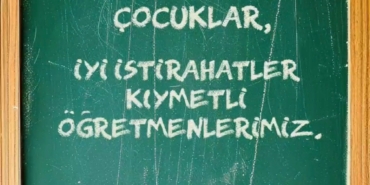 ÇOCUKLAR,
İYİ İSTİRAHATLER
KIYMETLİ
ÖĞRETMENLERİMİZ.